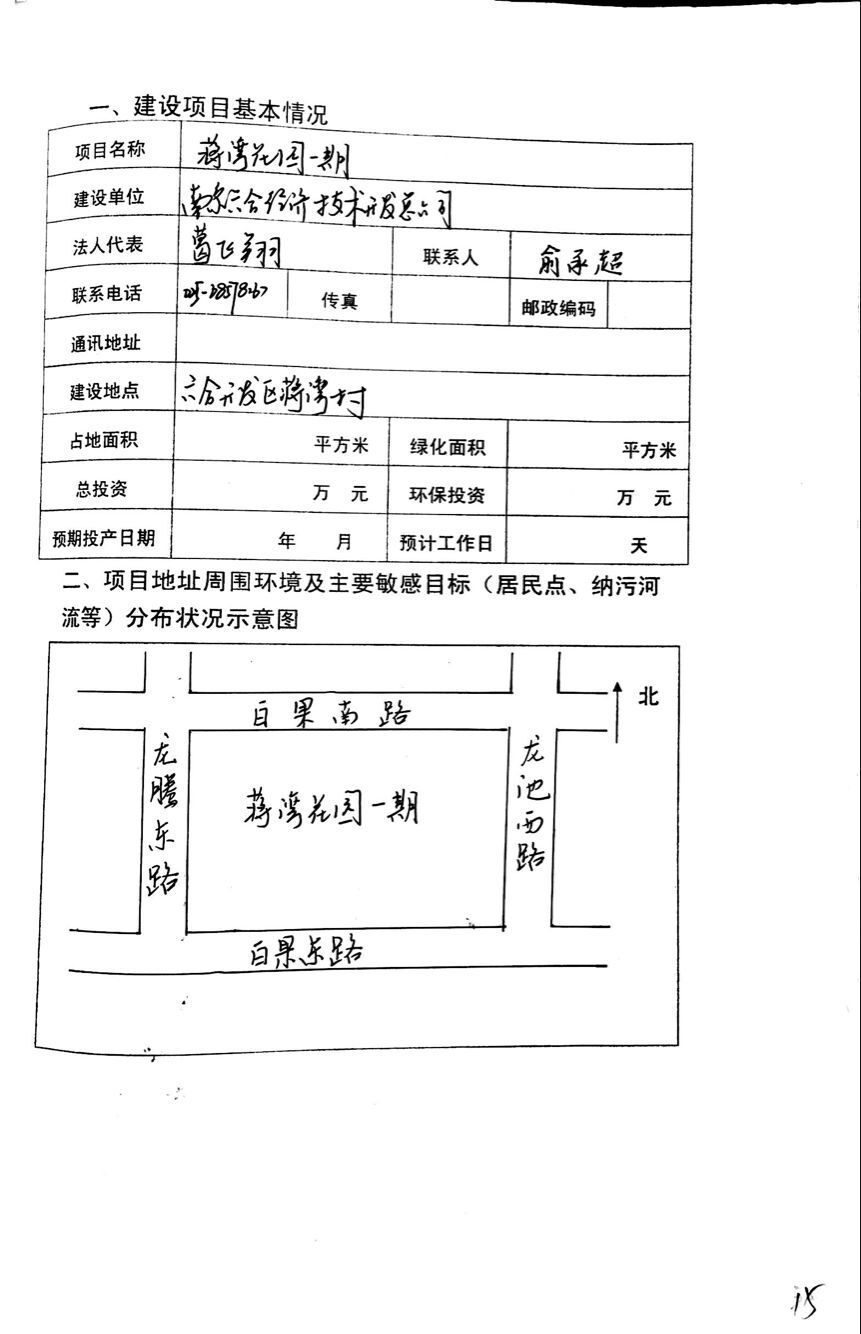 一、建设项目基本情况
项目名称 蒋湾花园一期
建设单位 南京六合经济技术开发总公司
法人代表 葛飞翔 联系人 俞承超
联系电话 传真 邮政编码
通讯地址
建设地点 六合开发区蒋湾村
占地面积 平方米 绿化面积 平方米
总投资 万 元 环保投资 万 元
预期投产日期 年 月 预计工作日 天
二、项目地址周围环境及主要敏感目标（居民点、纳污河
流等）分布状况示意图
北
白果南路
龙腾东路
蒋湾花园一期
龙池西路
白果东路
15